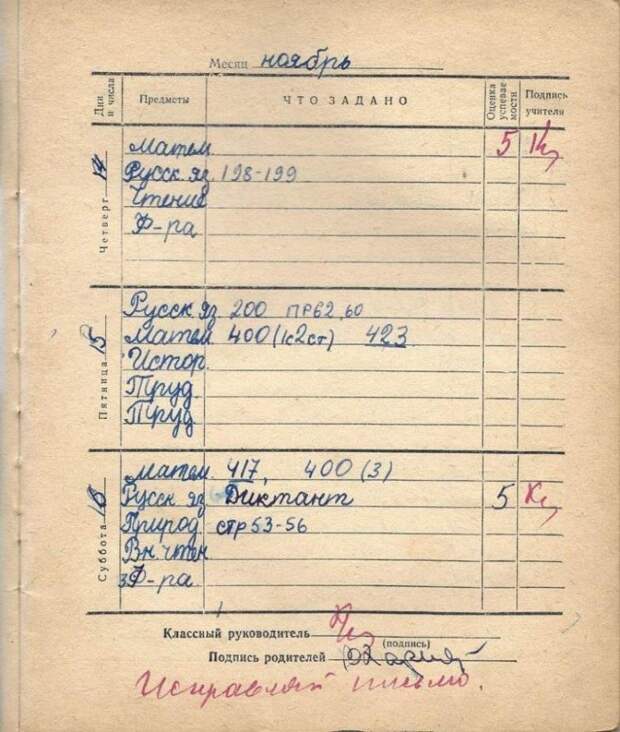 Месяц ноябрь
Дни и числа Предметы ЧТО ЗАДАНО Оценка успевае мости Подпись учителя
Четверг 14
Матем. 5
Русск яз 198-199
Чтение
Ф-ра
Пятница 15
Русск яз 200 пр62,60
Матем 400 (1с2ст) 423
Истор.
Труд
Труд
Суббота 16
Матем. 417, 400 (3)
Русск яз Диктант 5
Природ стр 53-56
Вн. чтен
Ф-ра
Классный руководитель
(подпись)
Подпись родителей
Исправляй письмо.